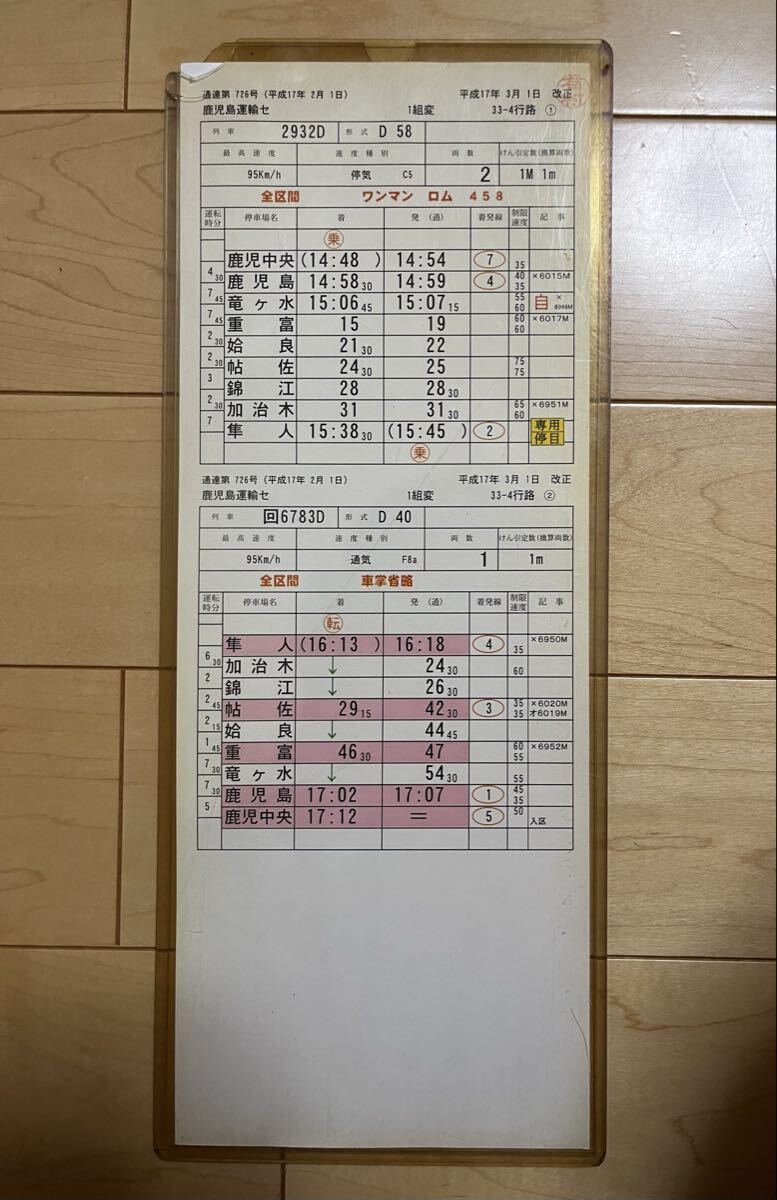 通達第 726号 (平成17年 2月 1日) 平成17年 3月 1日 改正
鹿児島運輸セ 1組変 33-4行路 ①
列車 2932D 形式 D 58
最高速度 速度種別 両数 けん引定数(換算両数)
95Km/h 停気 C5 2 1M 1m
全区間 ワンマン ロム 458
運転時分 停車場名 着 発(通) 着発線 制限速度 記事
乗
鹿児中央 (14:48 ) 14:54 7 35
4 30
鹿児島 14:58 30 14:59 4 40 35 ×6015M
7 45
竜ヶ水 15:06 45 15:07 15 55 60 自 × 6949M
7 45
重富 15 19 60 60 ×6017M
2 30
姶良 21 30 22
2 30
帖佐 24 30 25 75 75
3
錦江 28 28 30
2 30
加治木 31 31 30 65 60 ×6951M
7
隼人 15:38 30 (15:45 ) 2 専用 停目
乗
通達第 726号 (平成17年 2月 1日) 平成17年 3月 1日 改正
鹿児島運輸セ 1組変 33-4行路 ②
列車 回6783D 形式 D 40
最高速度 速度種別 両数 けん引定数(換算両数)
95Km/h 通気 F8a 1 1m
全区間 車掌省略
運転時分 停車場名 着 発(通) 着発線 制限速度 記事
転
隼人 (16:13 ) 16:18 4 35 ×6950M
6 30
加治木 ↓ 24 30 60
2
錦江 ↓ 26 30
2 45
帖佐 29 15 42 30 3 35 35 ×6020M オ6019M
2 15
姶良 ↓ 44 45
1 45
重富 46 30 47 60 55 ×6952M
7 30
竜ヶ水 ↓ 54 30 55
7 30
鹿児島 17:02 17:07 1 45 35
5
鹿児中央 17:12 = 5 50 入区